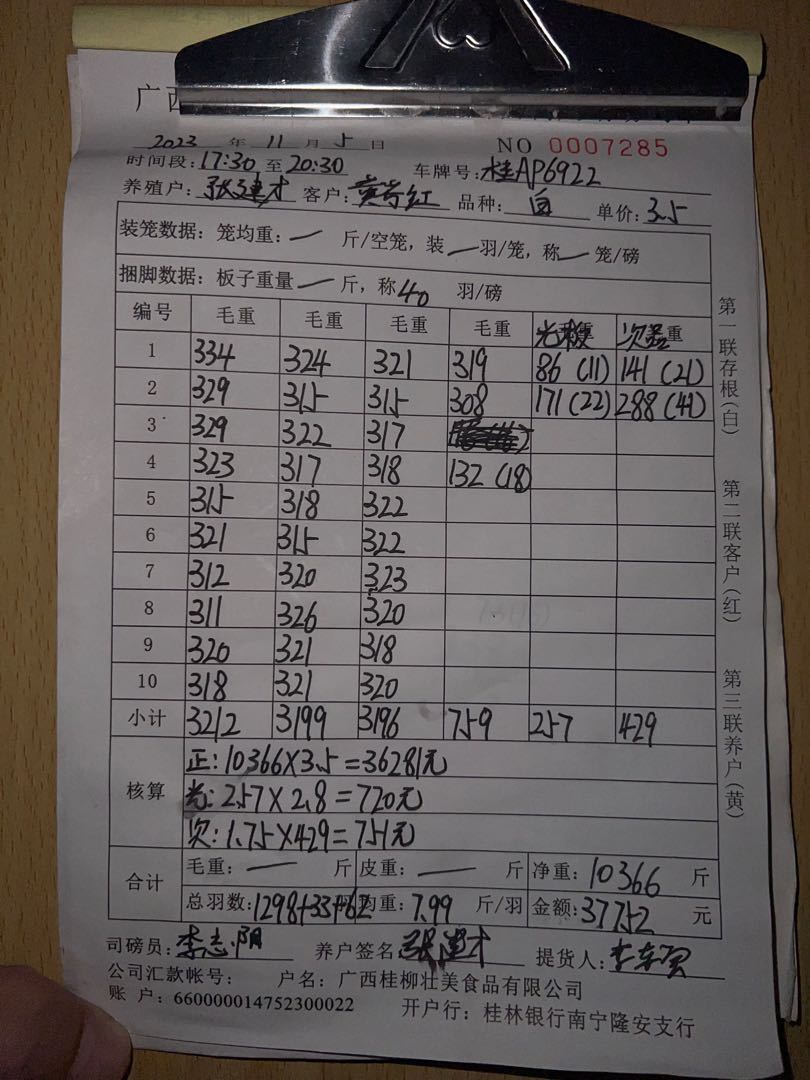 广西
2023 年 11 月 5 日 NO 0007285
时间段: 17:30 至 20:30 车牌号: 桂AP6922
养殖户: 张建才 客户: 品种: 白 单价: 3.5
装笼数据: 笼均重: — 斤/空笼, 装 — 羽/笼, 称 — 笼/磅
捆脚数据: 板子重量 — 斤, 称 40 羽/磅
编号 毛重 毛重 毛重 毛重 重
1 334 324 321 319 86 (11) 141 (21)
2 329 315 315 308 171 (22) 288 (41)
3 329 322 317
4 323 317 318 132 (18)
5 315 318 322
6 321 315 322
7 312 320 323
8 311 326 320
9 320 321 318
10 318 321 320
小计 3212 3199 3196 759 257 429
核算
正: 10366×3.5=36281元
光: 257×2.8=720元
次: 1.75×429=751元
合计 毛重: — 斤 皮重: — 斤 净重: 10366 斤
总羽数: 1298+33+62 均重: 7.99 斤/羽 金额: 37752 元
司磅员: 李志阴 养户签名: 张建才 提货人:
公司汇款帐号: 户名: 广西桂柳壮美食品有限公司
账户: 660000014752300022 开户行: 桂林银行南宁隆安支行
第一联存根(白)
第二联客户(红)
第三联养户(黄)